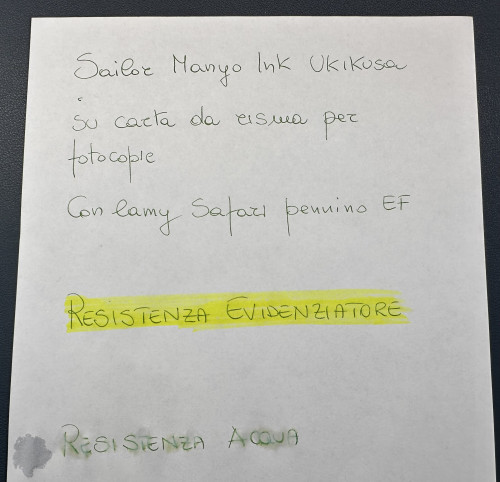 Sailor Manyo Ink UKIKUSA
su carta da risma per
fotocopie
Con lamy Safari pennino EF
RESISTENZA EVIDENZIATORE
RESISTENZA ACQUA